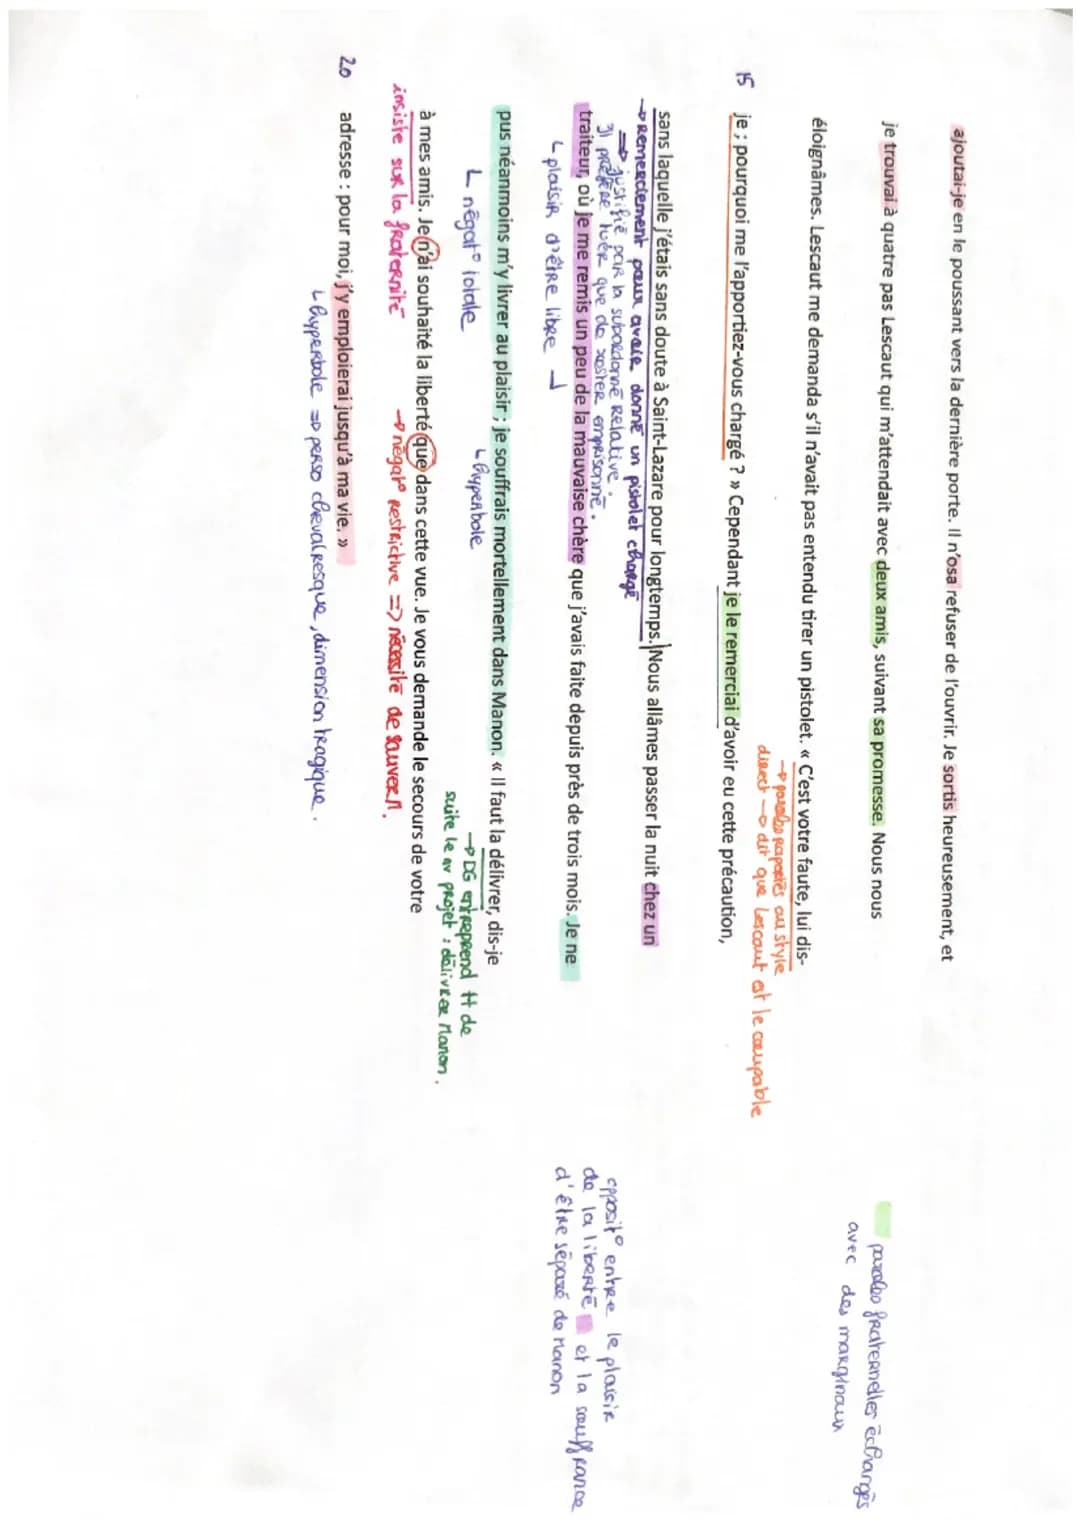 ajoutai-je en le poussant vers la dernière porte. Il n'osa refuser de l'ouvrir. Je sortis heureusement, et
je trouvai à quatre pas Lescaut qui m'attendait avec deux amis, suivant sa promesse. Nous nous
paroles fraternelles échangés
avec des marginaux
éloignâmes. Lescaut me demanda s'il n'avait pas entendu tirer un pistolet. « C'est votre faute, lui dis-
→ paroles raportés au style
direct → dit que Lescaut est le coupable
15 je ; pourquoi me l'apportiez-vous chargé ? » Cependant je le remerciai d'avoir eu cette précaution,
sans laquelle j'étais sans doute à Saint-Lazare pour longtemps. Nous allâmes passer la nuit chez un
→ Remerciement pour avoir donné un pistolet chargé
⇒ justifié par la subordonné Relative :
Il préfère tuer que de rester emprisonné.
traiteur, où je me remis un peu de la mauvaise chère que j'avais faite depuis près de trois mois. Je ne
↳ plaisir d'être libre ↲
opposit° entre le plaisir
de la liberté et la souffrance
d'être séparé de Manon
pus néanmoins m'y livrer au plaisir ; je souffrais mortellement dans Manon. « Il faut la délivrer, dis-je
↳ négat° totale
↳ hyperbole
→ DG entreprend tt de
suite le nv projet : délivrer Manon.
à mes amis. Je n'ai souhaité la liberté que dans cette vue. Je vous demande le secours de votre
insiste sur la fraternité
→ négat° restrictive => nécessité de sauver M.
20 adresse : pour moi, j'y emploierai jusqu'à ma vie. »
↳ hyperbole => perso chevalresque, dimension tragique.